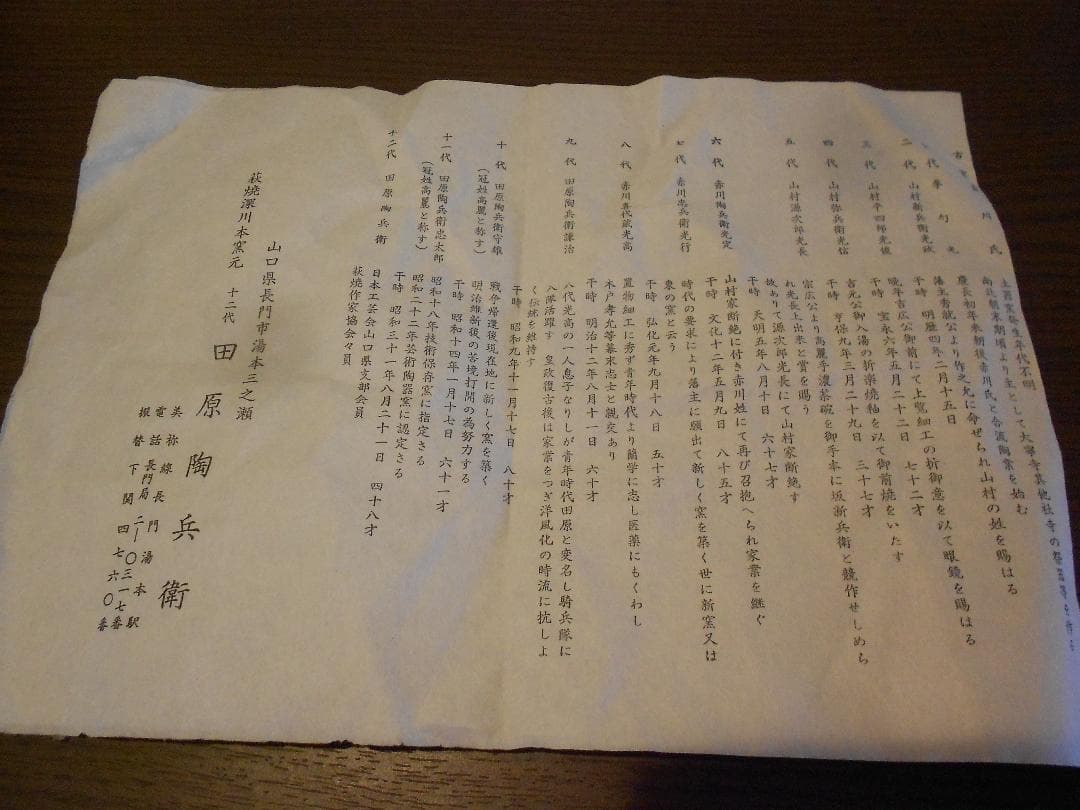 土器窯発生年代不明
南北朝末期頃より主として大寧寺其他社寺の祭器等を
慶長初年来朝後赤川氏と合流陶業を始む
藩主秀就公より作之允に命せられ山村の姓を賜はる
二代 山村新兵衛光政
干時 明暦四年二月十五日
藩主吉広公御前にて上覧細工の折御意を以て眼鏡を賜はる
三代 山村平四郎光俊
晩年吉広公御前にて
干時 宝永六年五月二十二日 七十二才
四代 山村弥兵衛光信
吉元公御入湯の折楽焼釉を以て御前焼をいたす
干時 享保九年三月二十九日 三十七才
五代 山村源次郎光長
宗広公より高麗手濃茶碗を御手本に坂新兵衛と競作せしめら
れ光長上出来と賞を賜う
故ありて源次郎光長にて山村家断絶す
干時 天明五年八月十日 六十七才
六代 赤川陶兵衛光定
山村家断絶に付き赤川姓にて再び召抱へられ家業を継ぐ
干時 文化十二年五月九日 八十五才
七代 赤川忠兵衛光行
時代の要求により藩主に願出て新しく窯を築く世に新窯又は
東の窯と云う
干時 弘化元年九月十八日 五十才
八代 赤川喜代蔵光高
置物細工に秀ず青年時代より蘭学に志し医薬にもくわし
木戸孝允等幕末志士と親交あり
干時 明治十二年八月十一日 六十才
九代 田原陶兵衛謙治
八代光高の一人息子なりしが青年時代田原と変名し騎兵隊に
入隊活躍す 皇政復古後は家業をつぎ洋風化の時流に抗しよ
く伝統を維持す
干時 昭和九年十一月十七日 八十才
十代 田原陶兵衛守雄
(冠姓高麗と称す)
戦争帰還後現在地に新しく窯を築く
明治維新後の苦境打開の為努力する
干時 昭和十四年一月十七日 六十一才
十一代 田原陶兵衛忠太郎
(冠姓高麗と称す)
昭和十八年技術保存窯に指定さる
昭和二十二年芸術陶器窯に認定さる
干時 昭和三十一年八月二十一日 四十八才
十二代 田原陶兵衛
日本工芸会山口県支部会員
萩焼作家協会々員
山口県長門市湯本三之瀬
萩焼深川本窯元 十二代 田原陶兵衛
美祢線長門湯本駅
電話長門局二|〇三一七番
振替下関四七六〇番